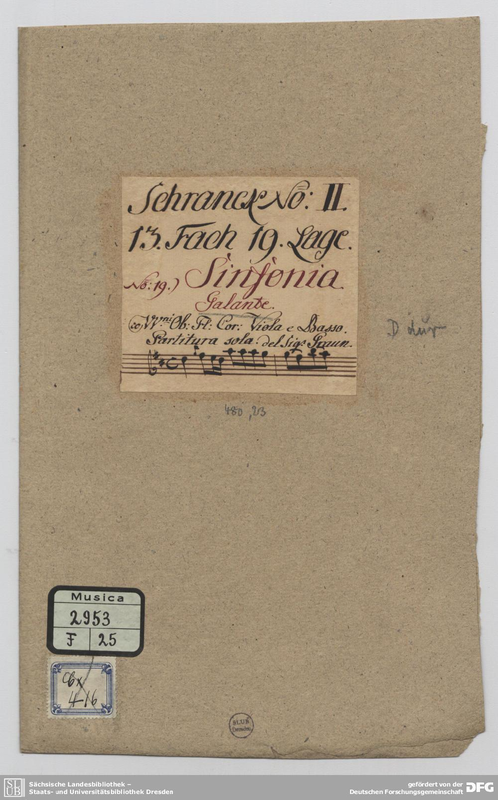 Schranck No: II.
13. Fach 19. Lage.
No: 19.) Sinfonia
Galante.
VVni Ob: Fl: Cor: Viola e Basso.
Partitura sola. del Sigr Graun.
D dur
480, 213
Musica
2953
F 25
4-16
SLUB
Dresden
SLUB
Sächsische Landesbibliothek –
Staats- und Universitätsbibliothek Dresden
gefördert von der
Deutschen Forschungsgemeinschaft
DFG